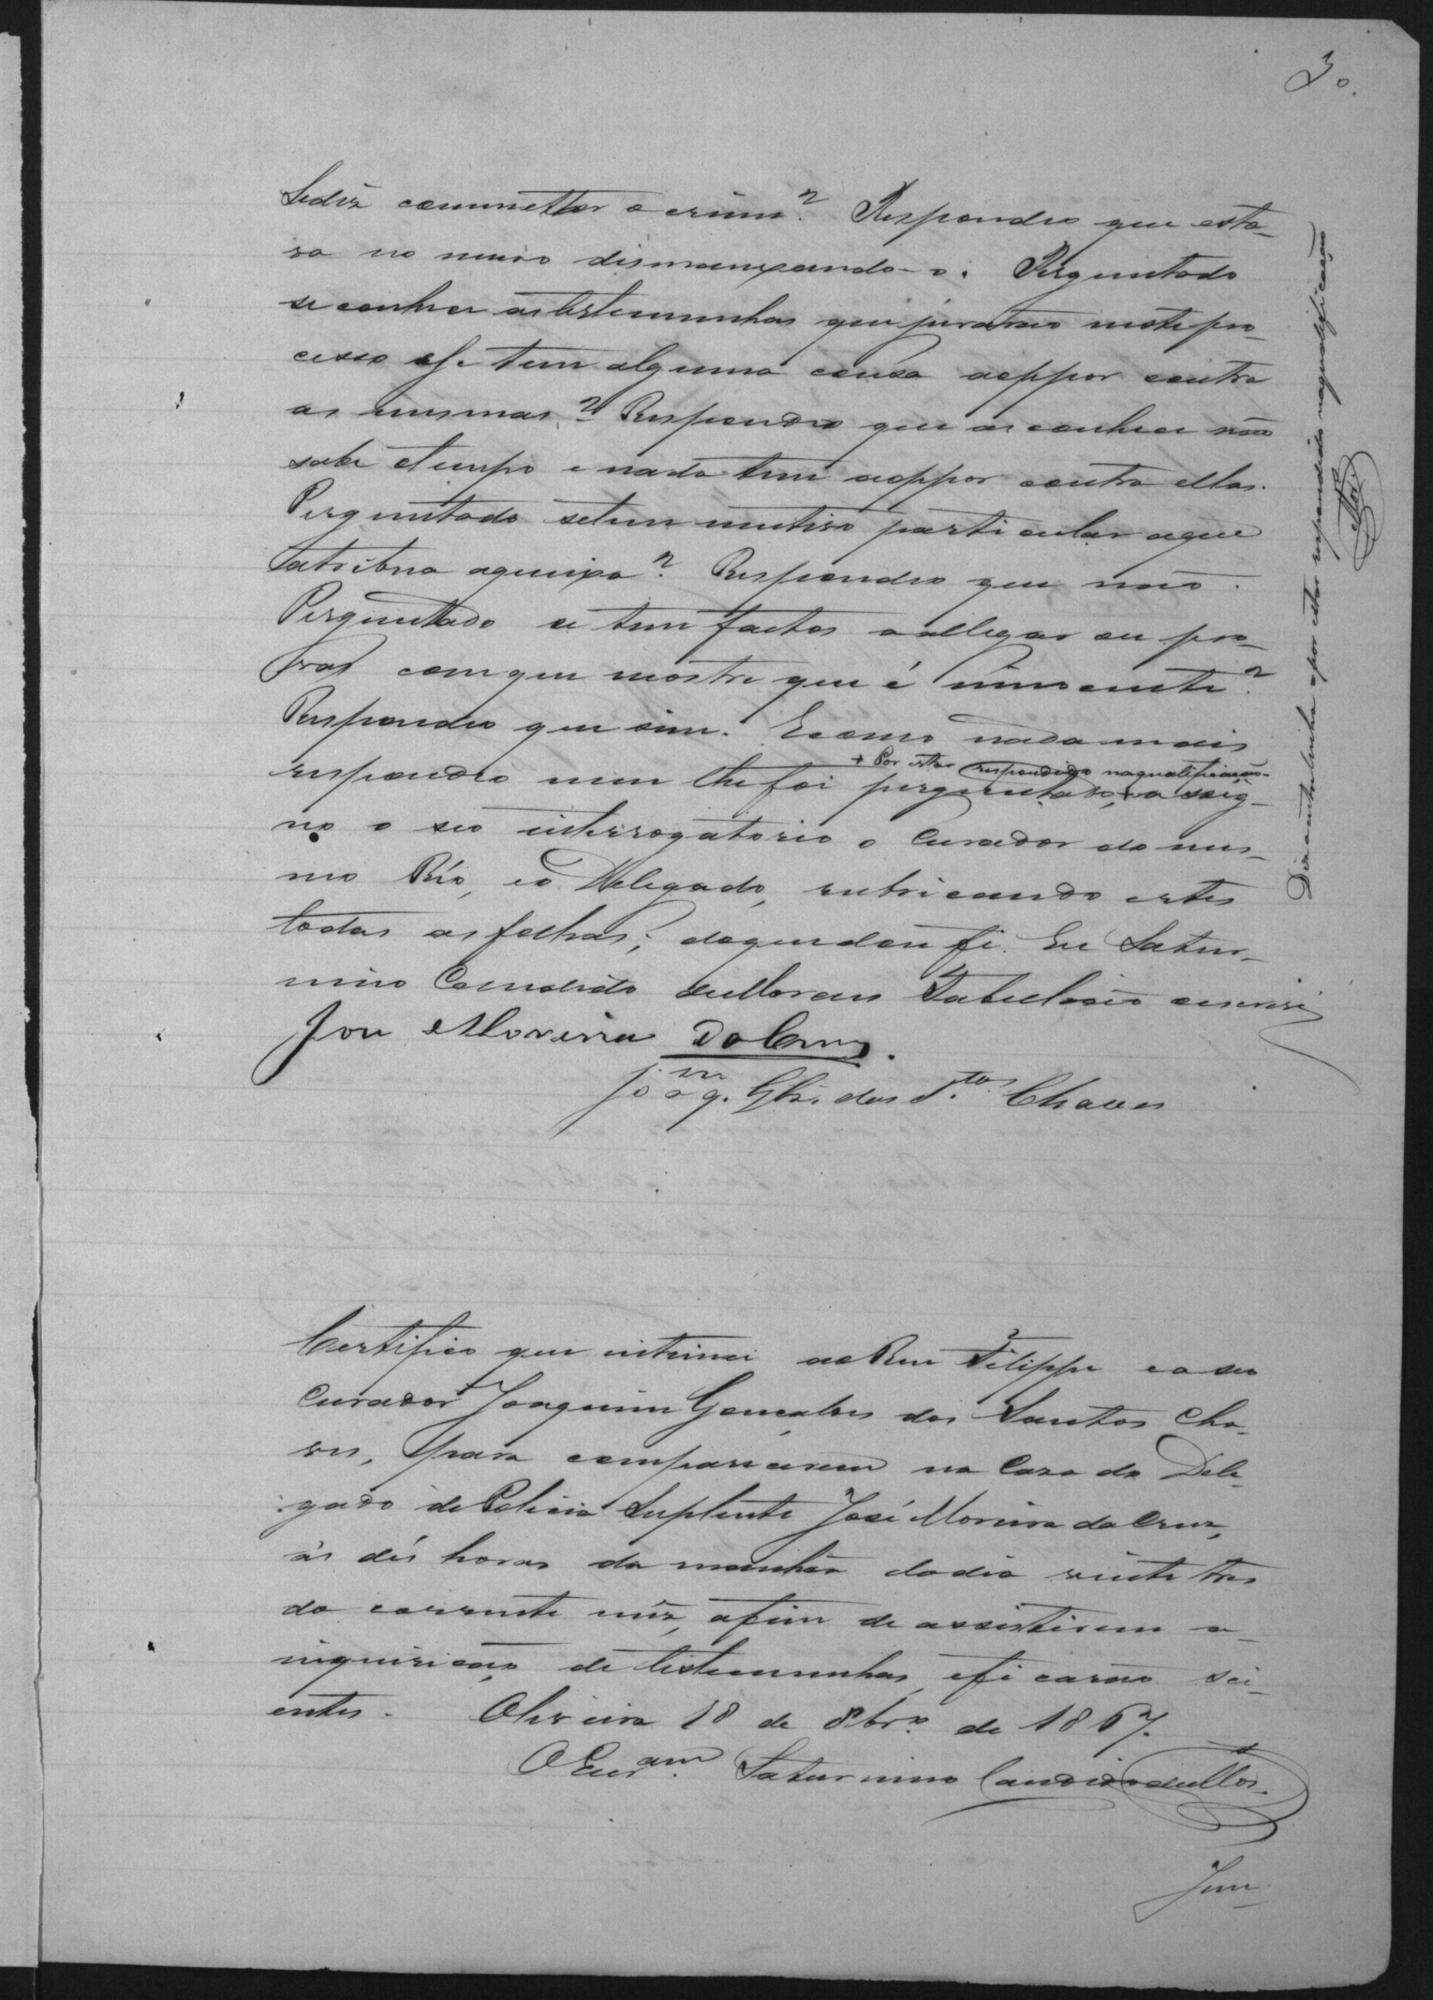 30.
Sediz commetter o crime? Respondeo que esta-
va no muro dismanxando-o. Perguntado
se conhece as testemunhas que jurarão neste pro-
cesso e se tem alguma cousa aoppor contra
as mesmas? Respondeo que as conhece não
sabe o tempo e nada tem aoppor contra ellas.
Perguntado setem mutivo particular aque
atribua aqueixa? Respondeo que não.
Perguntado se tem factos a allegar ou pro-
vas comque mostre que é innocente?
Respondeo que sim. Ecomo nada mais
+ Por estar respondido naqualificação-
respondeo nem lhe foi perguntado, + a ssig-
na o seo interrogatorio o Curador do mes-
mo Réo, eo Delegado, rubricando estes
todas as folhas; doquedou fé. Eu Satur-
nino Candido deMoraes Tabelião escrevi
José Moreira DaCruz.
Joaqm. Glz. dos Stos Chaves
Certifico que intimei aoReu Filippe e o seo
Curador Joaquim Gonçalves dos Santos Cha-
ves, para comparecerem na Caza do Dele-
gado dePolicia Suplente José Moreira daCruz,
ás dés horas da manhãa dodia vinte tres
do corrente mêz, afim de assistirem a
inquirição de testemunhas, eficarão sci-
entes. Oliveira 18 de 8br.o de 1867.
O Escram. Saturnino Candido deMor.
Jun-
Diz a entrelinha + por estar respondido naqualificação
Mor.